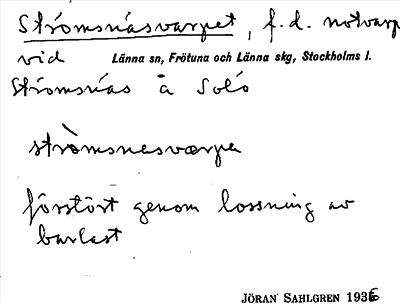 Strömsnäsvarpet, f.d. notvarp
vid Länna sn, Frötuna och Länna skg, Stockholms l.
Strömsnäs å Solö
strömsnesværpe
förstört genom lossning av
barlast
JÖRAN SAHLGREN 1936